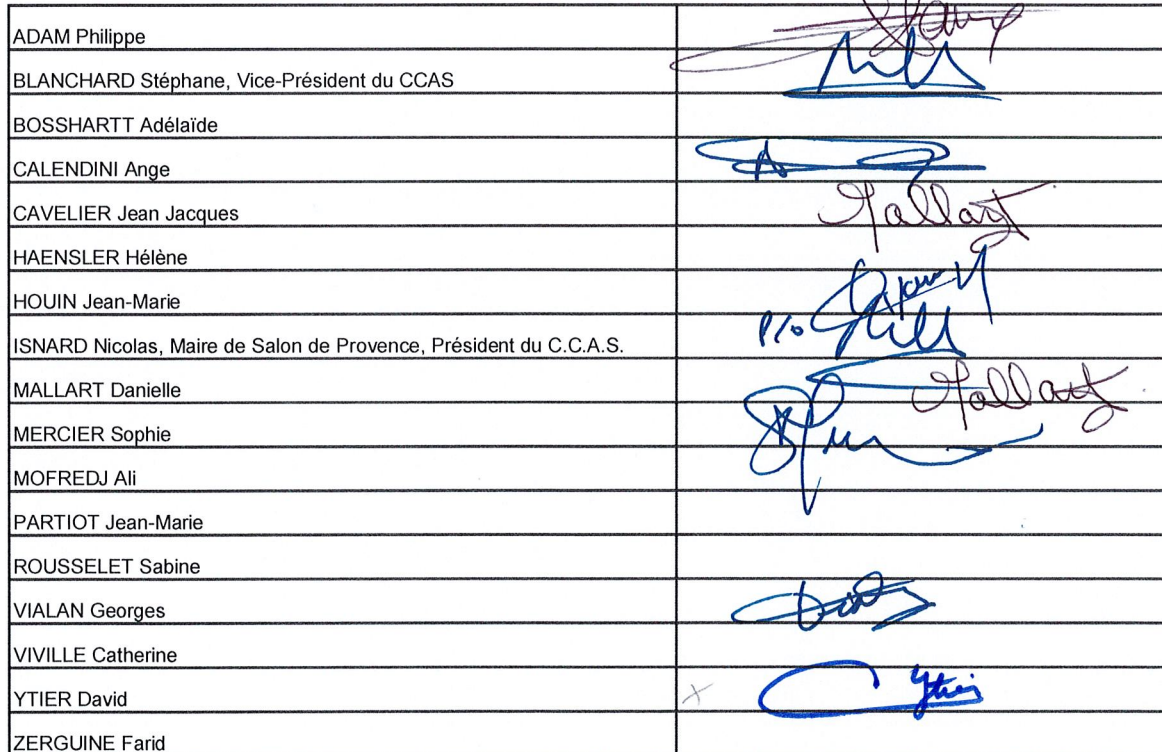 ADAM Philippe
BLANCHARD Stéphane, Vice-Président du CCAS
BOSSHARTT Adélaïde
CALENDINI Ange
CAVELIER Jean Jacques Mallart
HAENSLER Hélène
HOUIN Jean-Marie
ISNARD Nicolas, Maire de Salon de Provence, Président du C.C.A.S. P/o
MALLART Danielle Mallart
MERCIER Sophie
MOFREDJ Ali
PARTIOT Jean-Marie
ROUSSELET Sabine
VIALAN Georges
VIVILLE Catherine
YTIER David Ytier
ZERGUINE Farid